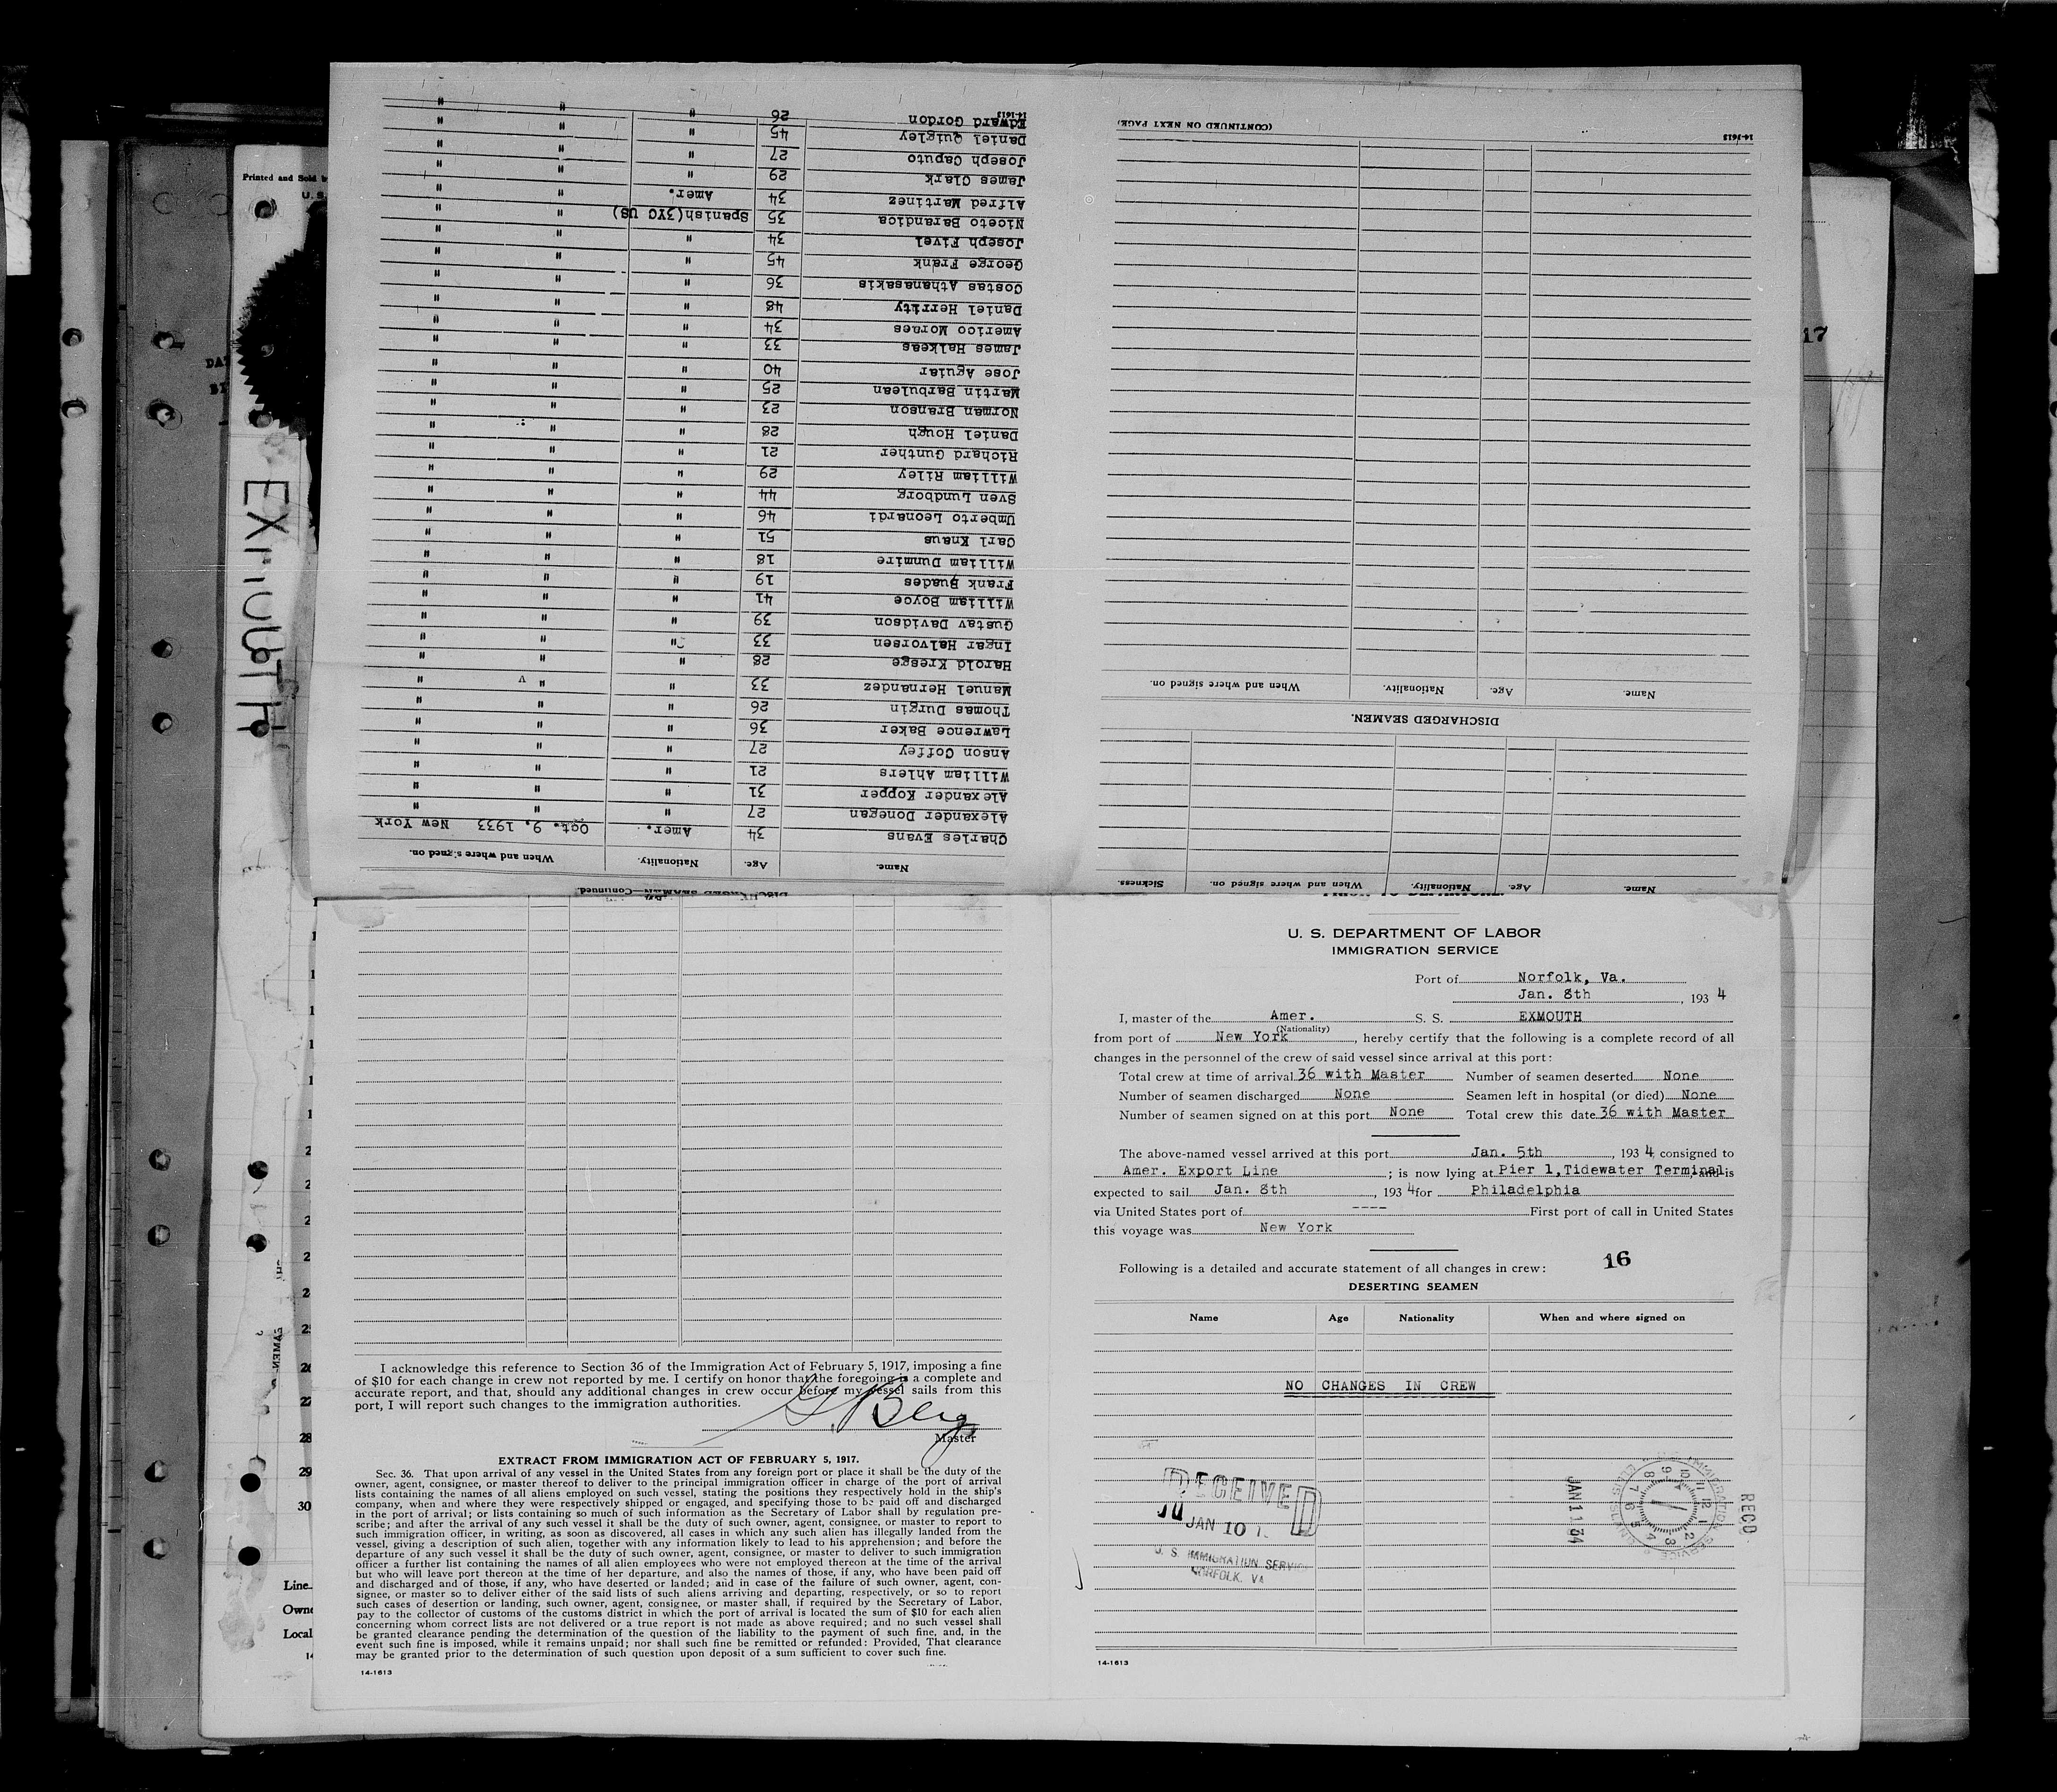 14-1613
(CONTINUED ON NEXT PAGE)
Name. Age. Nationality. When and where signed on.
DISCHARGED SEAMEN.
Name. Age. Nationality. When and where signed on. Sickness.
Name. Age. Nationality. When and where signed on.
Charles Evans 34 Amer. Oct. 9, 1933 New York
Alexander Donegan 27 " " "
Alexander Kopper 31 " " "
William Ahlers 21 " " "
Anson Coffey 27 " " "
Lawrence Baker 36 " " "
Thomas Durgin 26 " " "
Manuel Hernandez 33 " " "
Harold Kresge 28 " " "
Ingar Halvorsen 33 " " "
Gustav Davidson 39 " " "
William Boyce 41 " " "
Frank Buades 19 " " "
William Dunmire 18 " " "
Carl Knaus 51 " " "
Umberto Leonardi 46 " " "
Sven Lundborg 44 " " "
William Riley 29 " " "
Richard Gunther 21 " " "
Daniel Hough 28 " " "
Norman Branson 23 " " "
Martin Barbulean 25 " " "
Jose Aguiar 40 " " "
James Halkeas 33 " " "
Americo Moraes 34 " " "
Daniel Herrity 48 " " "
Costas Athanasakis 36 " " "
George Frank 45 " " "
Joseph Fivel 34 " " "
Niceto Barandica 35 Spanish(3YC US) " "
Alfred Martinez 34 Amer. " "
James Clark 29 " " "
Joseph Caputo 27 " " "
Daniel Quigley 45 " " "
Edward Gordon 26 " " "
14-1613
Printed and Sold
U. S.
EXMOUTH
17
I acknowledge this reference to Section 36 of the Immigration Act of February 5, 1917, imposing a fine
of $10 for each change in crew not reported by me. I certify on honor that the foregoing is a complete and
accurate report, and that, should any additional changes in crew occur before my vessel sails from this
port, I will report such changes to the immigration authorities.
Master
EXTRACT FROM IMMIGRATION ACT OF FEBRUARY 5, 1917.
Sec. 36. That upon arrival of any vessel in the United States from any foreign port or place it shall be the duty of the
owner, agent, consignee, or master thereof to deliver to the principal immigration officer in charge of the port of arrival
lists containing the names of all aliens employed on such vessel, stating the positions they respectively hold in the ship's
company, when and where they were respectively shipped or engaged, and specifying those to be paid off and discharged
in the port of arrival; or lists containing so much of such information as the Secretary of Labor shall by regulation pre-
scribe; and after the arrival of any such vessel it shall be the duty of such owner, agent, consignee, or master to report to
such immigration officer, in writing, as soon as discovered, all cases in which any such alien has illegally landed from the
vessel, giving a description of such alien, together with any information likely to lead to his apprehension; and before the
departure of any such vessel it shall be the duty of such owner, agent, consignee, or master to deliver to such immigration
officer a further list containing the names of all alien employees who were not employed thereon at the time of the arrival
but who will leave port thereon at the time of her departure, and also the names of those, if any, who have been paid off
and discharged and of those, if any, who have deserted or landed; and in case of the failure of such owner, agent, con-
signee, or master so to deliver either of the said lists of such aliens arriving and departing, respectively, or so to report
such cases of desertion or landing, such owner, agent, consignee, or master shall, if required by the Secretary of Labor,
pay to the collector of customs of the customs district in which the port of arrival is located the sum of $10 for each alien
concerning whom correct lists are not delivered or a true report is not made as above required; and no such vessel shall
be granted clearance pending the determination of the question of the liability to the payment of such fine, and, in the
event such fine is imposed, while it remains unpaid; nor shall such fine be remitted or refunded: Provided, That clearance
may be granted prior to the determination of such question upon deposit of a sum sufficient to cover such fine.
14-1613
U. S. DEPARTMENT OF LABOR
IMMIGRATION SERVICE
Port of Norfolk, Va.
Jan. 8th, 1934
I, master of the Amer. S. S. EXMOUTH
(Nationality)
from port of New York, hereby certify that the following is a complete record of all
changes in the personnel of the crew of said vessel since arrival at this port:
Total crew at time of arrival 36 with Master Number of seamen deserted None
Number of seamen discharged None Seamen left in hospital (or died) None
Number of seamen signed on at this port None Total crew this date 36 with Master
The above-named vessel arrived at this port Jan. 5th, 1934 consigned to
Amer. Export Line; is now lying at Pier 1, Tidewater Terminal, and is
expected to sail Jan. 8th, 1934 for Philadelphia
via United States port of ---- First port of call in United States
this voyage was New York
16
Following is a detailed and accurate statement of all changes in crew:
DESERTING SEAMEN
Name Age Nationality When and where signed on
NO CHANGES IN CREW
RECEIVED
JAN 10
U. S. IMMIGRATION SERVICE
NORFOLK, VA
JAN 11 34
RECD
14-1613
28
29
30
Line
Local